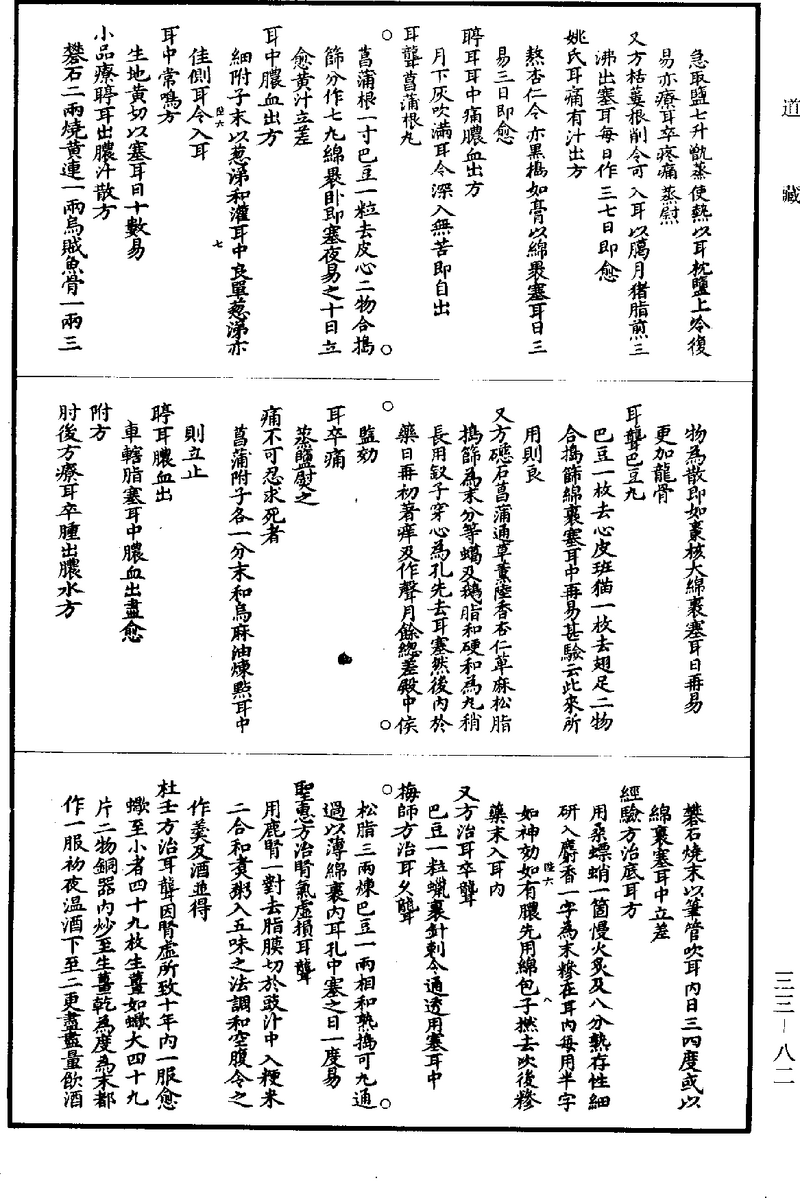 道藏
急取鹽七升甑蒸使熱以耳枕鹽上冷復
易亦療耳卒疼痛蒸熨
又方栝蔞根削令可入耳以臈月猪脂煎三
沸出塞耳每日作三七日即愈
姚氏耳痛有汁出方
熬杏仁令赤黑搗如膏以綿裹塞耳日三
易三日即愈
聤耳耳中痛膿血出方
月下灰吹滿耳令深入無苦即自出
耳聾菖蒲根丸
菖蒲根一寸巴豆一粒去皮心二物合搗
篩分作七丸綿裹卧即塞夜易之十日立
愈黃汁立差
耳中膿血出方
細附子末以葱涕和灌耳中良單葱涕亦
佳側耳令入耳
陸六
七
耳中常鳴方
生地黃切以塞耳日十數易
小品療聤耳出膿汁散方
礬石二兩燒黃連一兩烏賊魚骨一兩三
物為散即如棗核大綿裹塞耳日再易
更加龍骨
耳聾巴豆丸
巴豆一枚去心皮班猫一枚去翅足二物
合搗篩綿裹塞耳中再易甚驗云此來所
用則良
又方磁石菖蒲通草薰陸香杏仁萆麻松脂
搗篩為末分等蠟及鵝脂和硬和為丸稍
長用釵子穿心為孔先去耳塞然後內於
藥日再初著痒及作聲月餘總差殿中侯
監効
耳卒痛
蒸鹽熨之
痛不可忍求死者
菖蒲附子各一分末和烏麻油煉點耳中
則立止
聤耳膿血出
車轄脂塞耳中膿血出盡愈
附方
肘後方療耳卒腫出膿水方
礬石燒末以筆管吹耳內日三四度或以
綿裹塞耳中立差
經驗方治底耳方
用桑螵蛸一箇慢火炙及八分熟存性細
研入麝香一字為末糝在耳內每用半字
如神効如有膿先用綿包子撚去次後糝
陸六
八
藥末入耳內
又方治耳卒聾
巴豆一粒蠟裹針刺令通透用塞耳中
梅師方治耳久聾
松脂三兩煉巴豆一兩相和熟搗可丸通
過以薄綿裹內耳孔中塞之日一度易
聖惠方治腎氣虛損耳聾
用鹿腎一對去脂膜切於豉汁中入粳米
二合和煮粥入五味之法調和空腹令之
作羹及酒並得
杜壬方治耳聾因腎虛所致十年內一服愈
蠍至小者四十九枚生薑如蠍大四十九
片二物銅器內炒至生薑乾為度為末都
作一服初夜温酒下至二更盡盡量飲酒
三三—八二